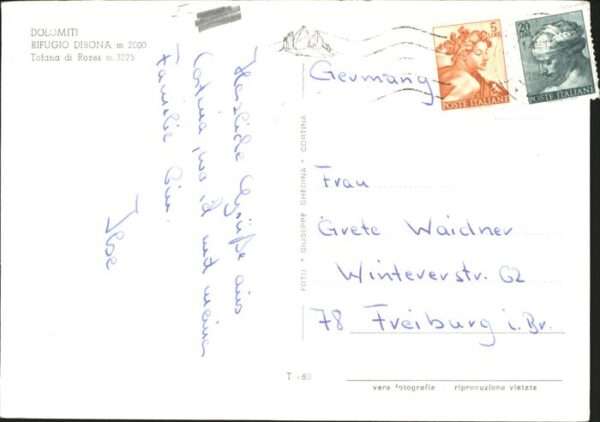 DOLOMITI
RIFUGIO DIBONA m. 2000
Tofana di Rozes m. 3225
Herzliche Grüße aus
Cortina, wo ich mit meiner
Familie bin.
Ilse
FOTO * GIUSEPPE GHEDINA * CORTINA
5
POSTE ITALIANE
20
POSTE ITALIANE
Germany
Frau
Grete Waidner
Wintererstr. 62
78 Freiburg i. Br.
vera fotografia riproduzione vietata